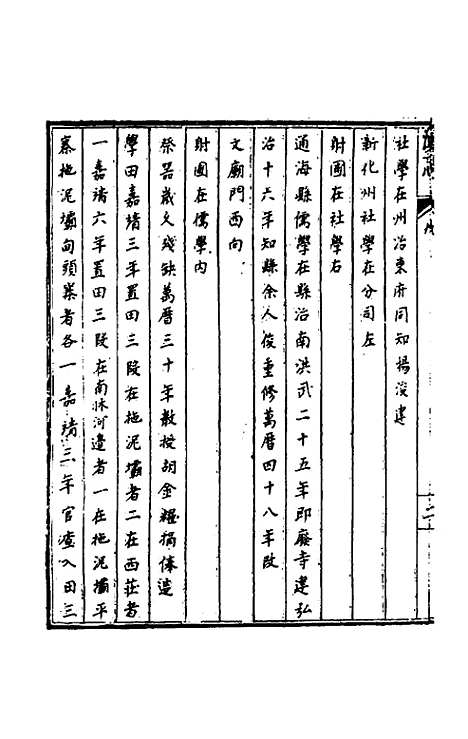 社學在州治東府同知楊浚建
新化州社學在分司左
射圃在社學右
通海縣儒學在縣治南洪武二十五年即廢寺建弘
治十六年知縣余人俊重修萬曆四十八年改
文廟門西向
射圃在儒學內
祭器歲久殘缺萬曆三十年教授胡金耀捐俸造
學田嘉靖三年置田三段在拖泥壩者二在西莊者
一嘉靖六年置田三段在南林河邊者一在拖泥壩平
寨拖泥壩向頭寨者各一嘉靖三年官查入田三